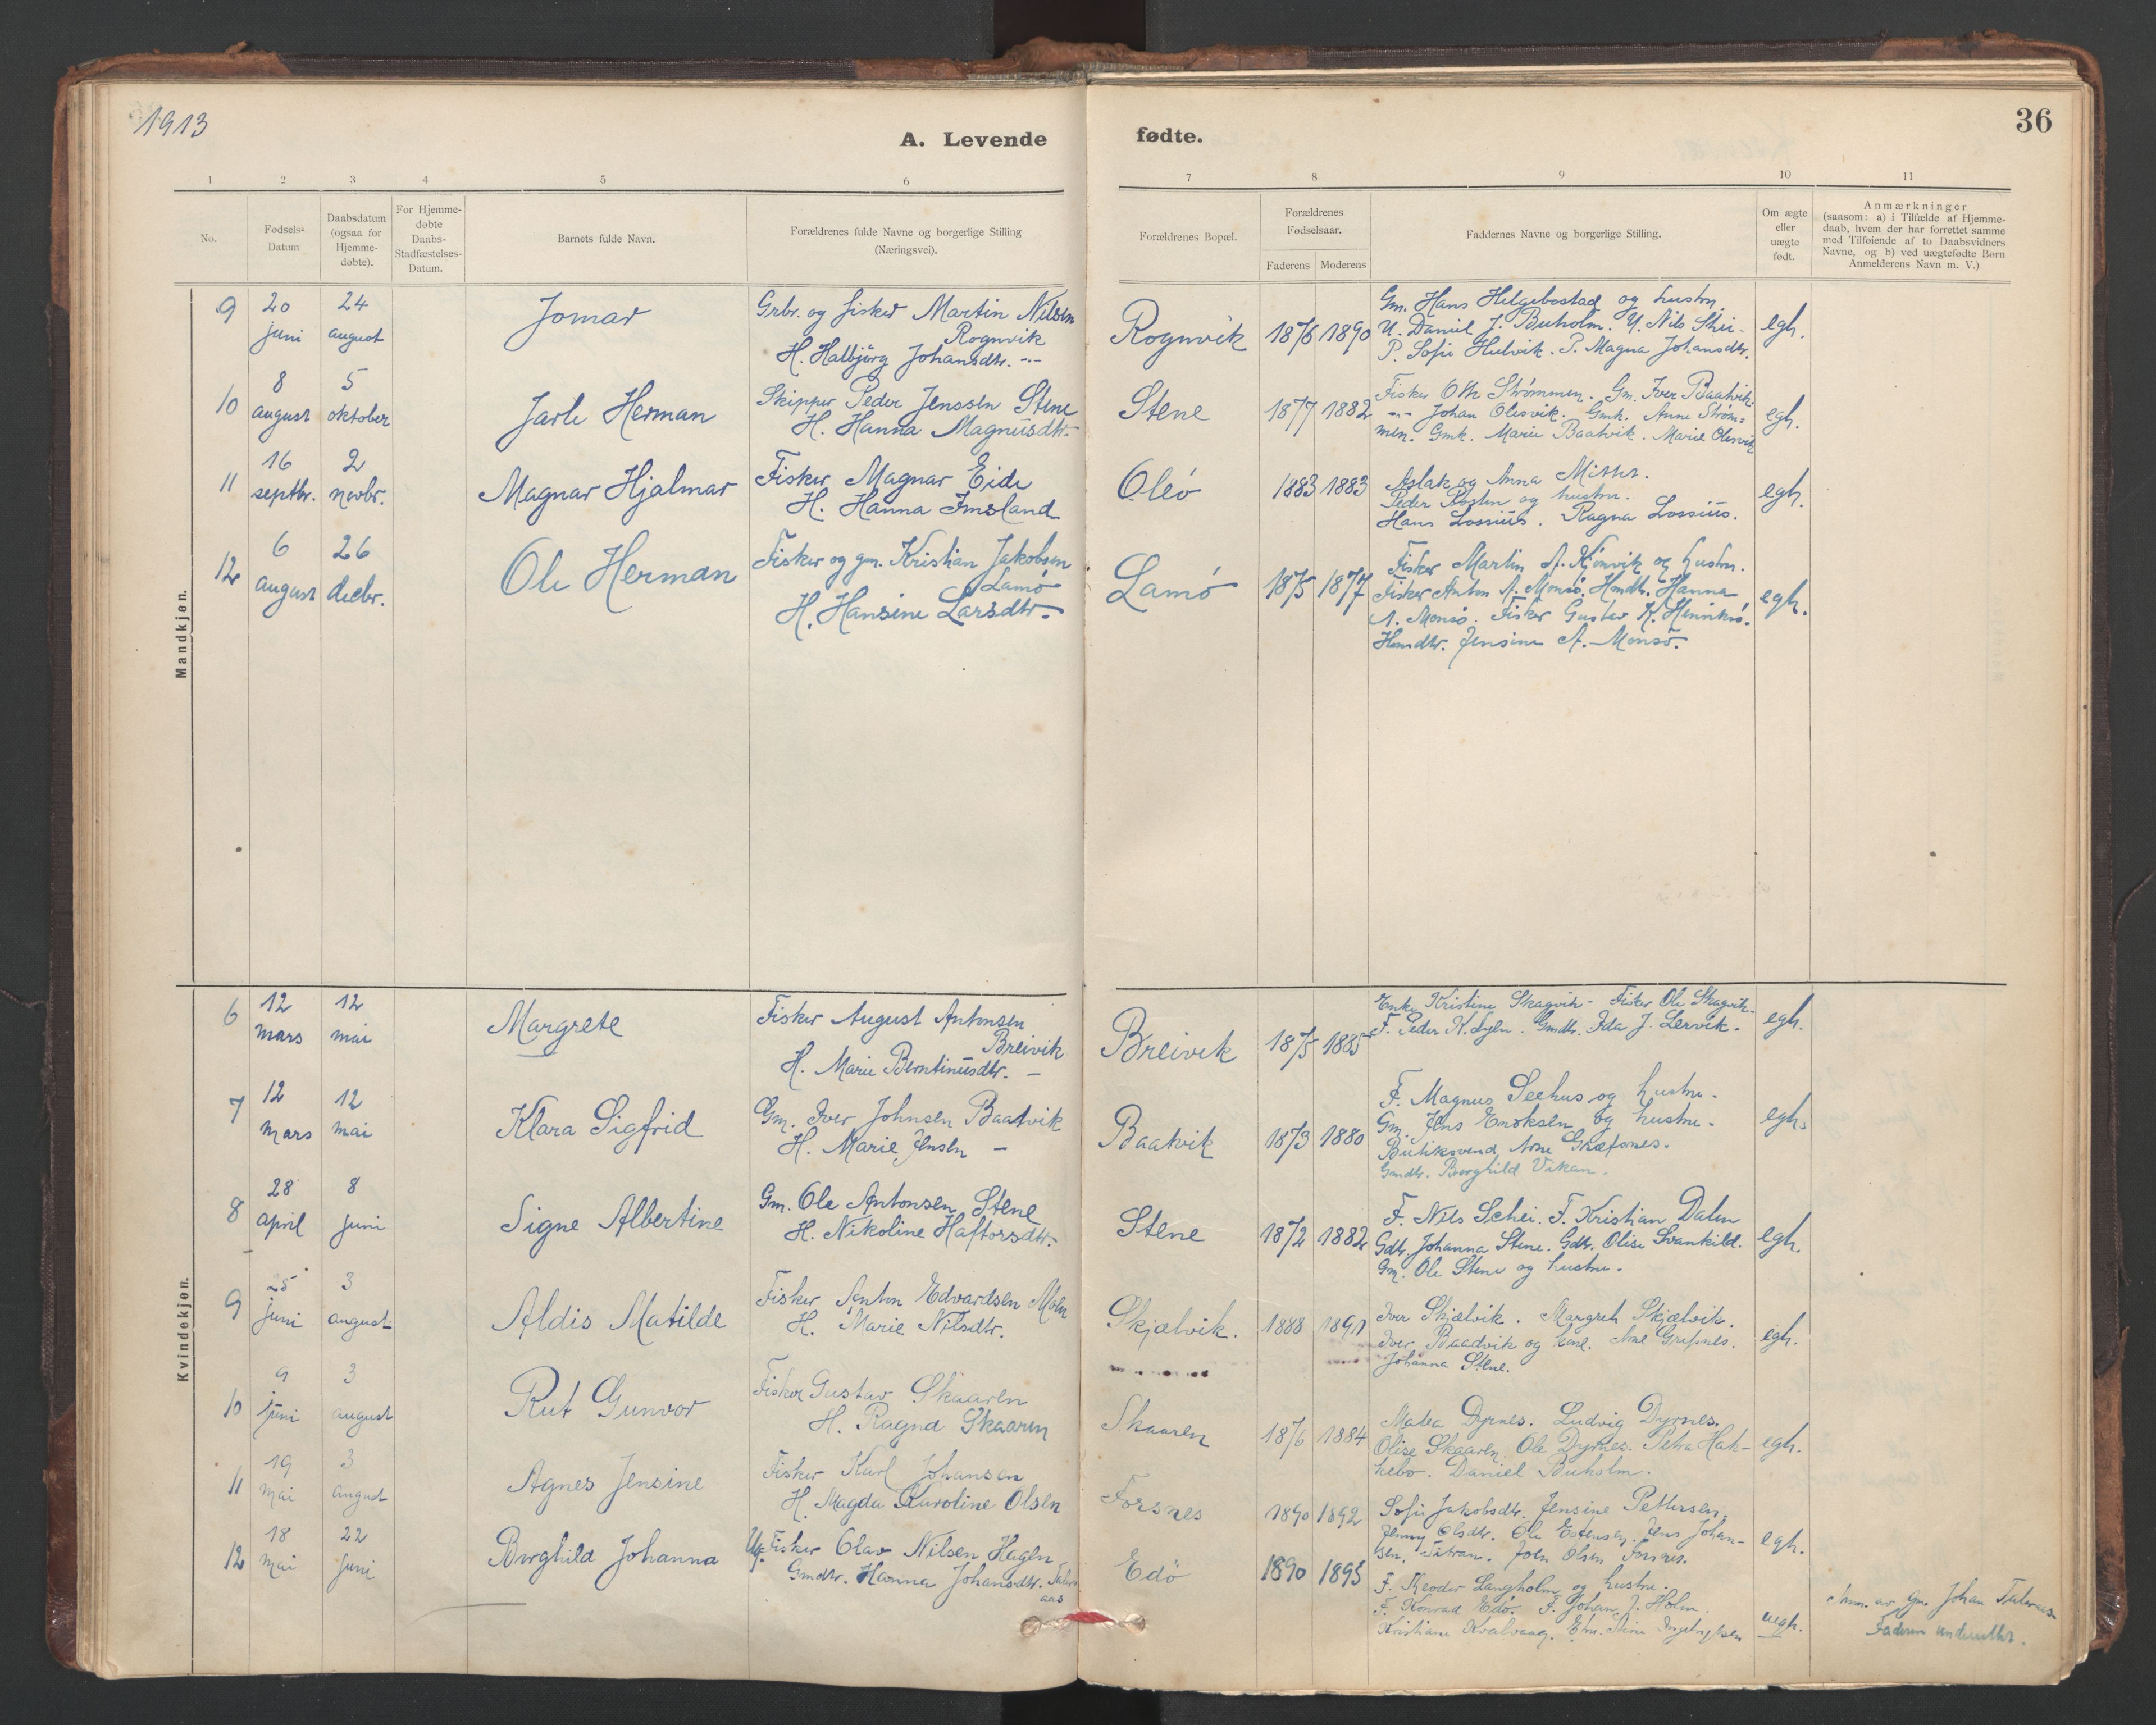 1913
A. Levende fødte.
36
1 2 3 4 5 6 7 8 9 10 11
No.
Fødsels-
Datum
Daabsdatum
(ogsaa for
Hjemme-
døbte).
For Hjemme-
døbte
Daabs-
Stadfæstelses-
Datum.
Barnets fulde Navn.
Forældrenes fulde Navne og borgerlige Stilling
(Næringsvei).
Forældrenes Bopæl.
Forældrenes
Fødselsaar.
Faderens Moderens
Faddernes Navne og borgerlige Stilling.
Om ægte
eller
uægte
født.
Anmærkninger
(saasom: a) i Tilfælde af Hjemme-
daab, hvem der har forrettet samme
med Tilføiende af to Daabsvidners
Navne, og b) ved uægtefødte Børn
Anmelderens Navn m. V.)
Mandkjøn.
9
20
juni
24
august
Jomar
Grbr. og fisker Martin Nilsen
Rognvik
H. Halbjörg Johansdtr. -"-
Rognvik
1876 1890
Gm. Hans Helgebostad og hustru.
U. Daniel J. Buholm. U. Nils
P. Sofie Hulvik. P. Magna Johansdtr.
egt.
10
8
august
5
oktober
Jarle Herman
Skipper Peder Jenssen Stene
H. Hanna Magnusdtr.
Stene
1877 1882
Fisker Strømmen. Gm. Iver Baatvik.
-"- Johan Olesvik. Gmk. Anne Strøm=
men. Gmk. Marie Baatvik. Marie Olesvik
egt.
11
16
septbr.
2
novbr.
Magnar Hjalmar
Fisker Magnar Eide
H. Hanna Imsland
Oleó
1883 1883
Aslak og Anna
Peder og hustru.
Hans Lossius. Ragna Lossius.
egt.
12
6
august
26
decbr.
Ole Herman
Fisker og gm. Kristian Jakobsen
Lamó
H. Hansine Larsdtr.
Lamó
1875 1877
Fisker Martin A. Kjönvik og hustru.
Fisker Anton A. Monsö. Hanna
A. Monsö. Fisker Gustav K.
Jensine A. Monsö.
egt.
Kvindekjøn.
6
12
mars
12
mai
Margrete
Fisker August Antonsen
Breivik
H. Marie Berntinusdtr. -
Breivik
1875 1885
Enke Kristine Skagvik - Fisker Ole Skagvik.
F. Peder K. Gmdtr. Ida J. Lervik.
egt.
7
12
mars
12
mai
Klara Sigfrid
Gm. Iver Johnsen Baatvik
H. Marie Jensen -
Baatvik
1873 1880
F. Magnus Seehus og hustru.
Gm. Jens Enoksen og hustru.
Butiksvend Arne
Gmdtr. Borghild Vikan.
egt.
8
28
april
8
juni
Signe Albertine
Gm. Ole Antonsen Stene
H. Nikoline Haftorsdtr.
Stene
1872 1882
F. Nils Schei. F. Kristian Dalen
Gdtr. Johanna Stene. Gdtr. Olise Svankild.
Gm. Ole Stene og hustru.
egt.
9
25
juni
3
august
Aldis Matilde
Fisker Anton Edvardsen Moen
H. Marie Nilsdtr.
Skjælvik.
1888 1891
Iver Skjælvik. Margrete Skjælvik.
Iver Baadvik og kone. Arne
Johanna Stene.
egt.
10
9
juni
3
august
Rut Gunvor
Fisker Gustav Skaaren
H. Ragna Skaaren
Skaaren
1876 1884
Matea Dyrnes. Ludvig Dyrnes.
Olise Skaaren. Ole Dyrnes. Petra Hak-
kebo. Daniel Buholm.
egt.
11
19
mai
3
august
Agnes Jensine
Fisker Karl Johansen
H. Magda Karoline Olsen
Forsnes
1890 1892
Sofie Jakobsdtr. Jensine Pettersen,
Jenny Olsdtr. Ole Estensen. Jens Johan-
sen, Titran. Joen Olsen Forsnes.
egt.
12
18
mai
22
juni
Borghild Johanna
Ug. Fisker Olav Nilsen Hagen
Gmdtr. Hanna Johansdtr.
aas
Edö
1890 1895
F. Langholm og hustru.
F. Konrad Edö. F. Johan J. Holm.
Kristiane Kvalvaag.
uegt.
Anm. av gm. Johan
Faderen